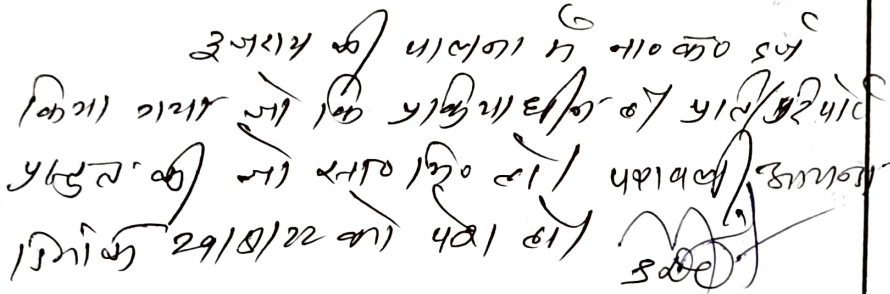 इजराय की पालना में ना०क०० दर्ज
किया गया जो कि प्रक्रियाधीन है। प्रति रिपोर्ट
प्रस्तुत की जो शा० मि० हो। पत्रावली आयन्दा
दिनांक 29/8/22 को पेश हो।